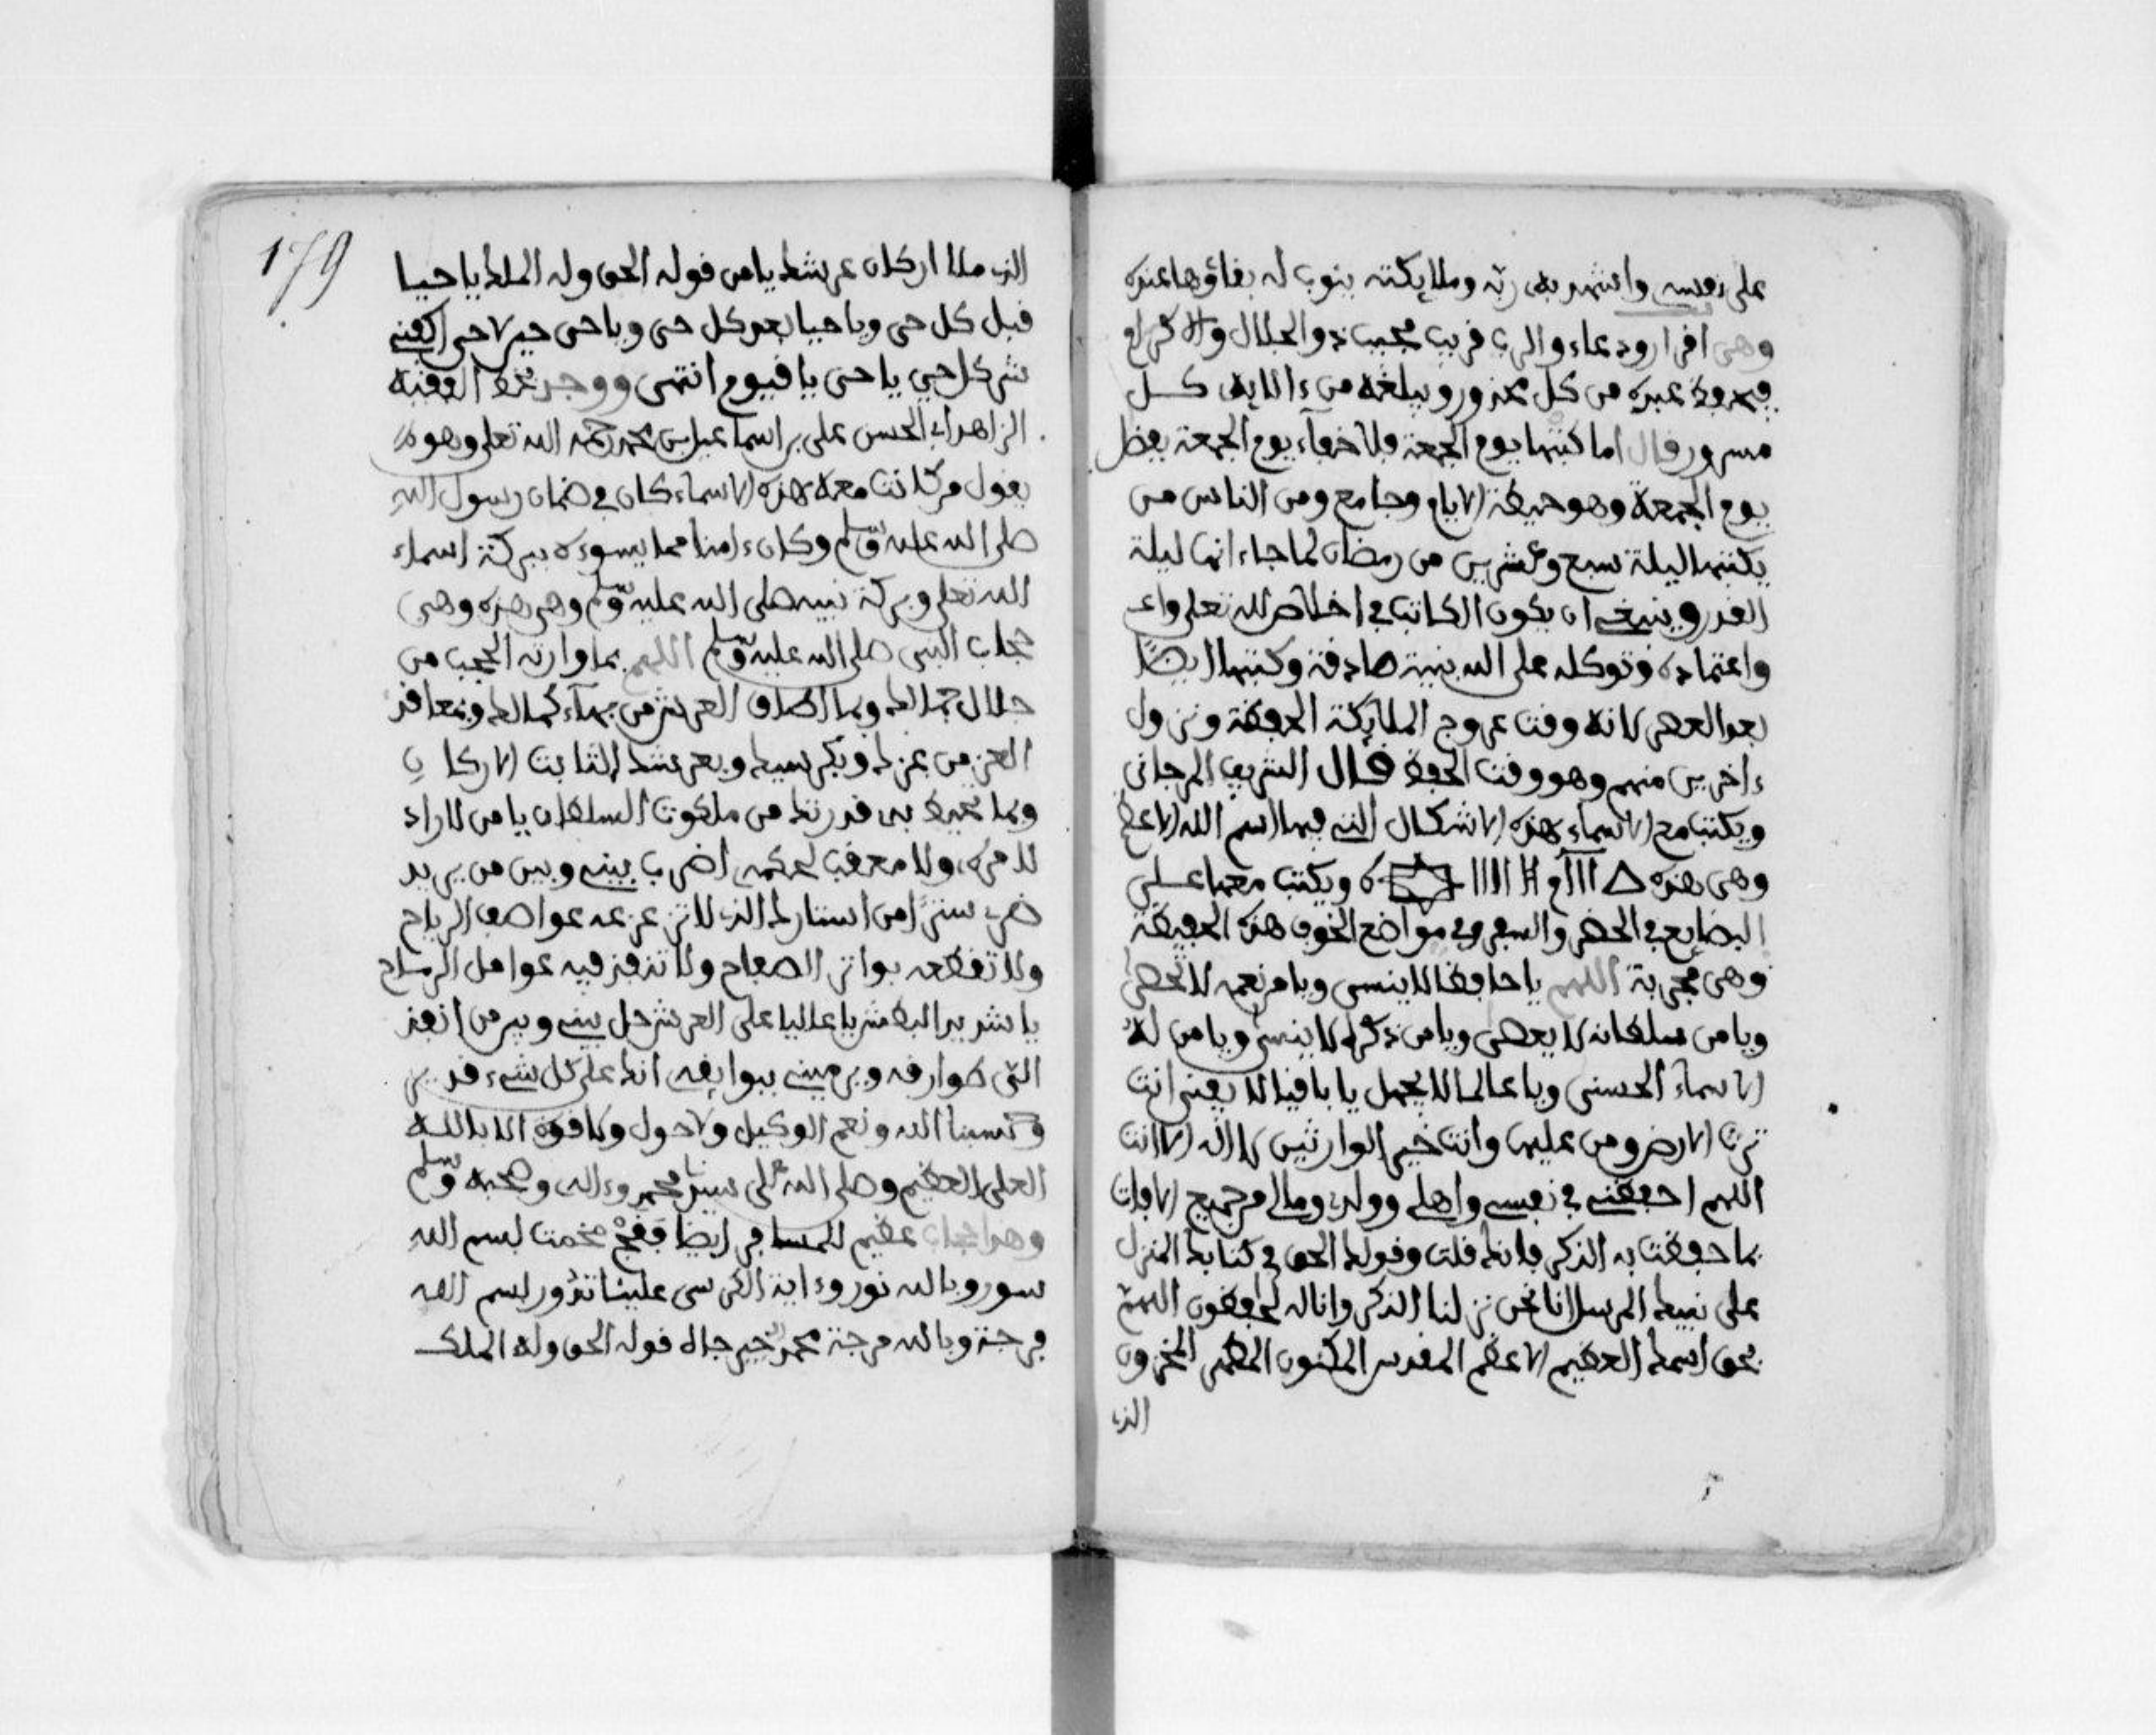 على نفسه واشهد به ربه وملايكته ينوب له بقاؤها عنده
وهي اقرار ودعاء والرب قريب مجيب ذو الجلال والاكرام
من كل محذور ويبلغه من ءالايه كل
مسرور قال اما كتبها يوم الجمعة فلا خفاء يوم الجمعة بفضل
يوم الجمعة وهو الايام وجامع ومن الناس من
يكتبها ليلة سبع وعشرين من رمضان لما جاء انها ليلة
القدر وينبغي ان يكون الكاتب في اخلاص لله تعلى واع
واعتماده وتوكله على الله بنية صادقة وكتبها ايضا
بعد العصر لانه وقت عروج الملايكة الحفظة ونزول
ءاخرين منهم وهو وقت الحفظ قال الشريف المرجاني
ويكتب مع الاسماء هذه الاشكال التي فيها اسم الله الاعظم
وهي هذه ويكتب معها على
البضايع في الحضر والسفر وفي مواضع الخوف هذه الحفيظة
وهي مجربة اللهم يا حافظا لا ينسى ويا من نعمه لا تحصى
ويا من سلطانه لا يعصى ويا من ذكره لا ينسى ويا من له
الاسماء الحسنى ويا عالما لا يجهل يا باقيا لا يفنى انت
ترث الارض ومن عليها وانت خير الوارثين لا اله الا انت
اللهم احفظني في نفسي واهلي وولدي ومالي من جميع الافات
بما حفظت به الذكر فانك قلت وقولك الحق في كتابك المنزل
على نبيك المرسل انا نحن نزلنا الذكر وانا له لحافظون اللهم
بحق اسمك العظيم الاعظم المقدس المكنون المطهر المخزون
الذي
179
الذي ملا اركان عرشك يا من قوله الحق وله الملك يا حيا
قبل كل حي ويا حيا بعد كل حي ويا حي حين لا حي اكفني
شر كل حي يا حي يا قيوم انتهى ووجد بخط الفقيه
الزاهد ابي الحسن علي بن اسماعيل بن محمد رحمه الله تعلى وهو
يقول من كانت معه هذه الاسماء كان في ضمان رسول الله
صلى الله عليه وسلم وكان ءامنا مما يسوءه ببركة اسماء
الله تعلى وبركة نبيه صلى الله عليه وسلم وهي هذه وهي
حجاب النبي صلى الله عليه وسلم اللهم بما وارته الحجب من
جلال جمالك وبما اطاف العرش من بهاء كمالك وبمعاقد
العز من عزك وبكرسيك وبعرشك الثابت الاركان
وبما تحيط به قدرتك من ملكوت السلطان يا من لا راد
لامره ولا معقب لحكمه اضرب بيني وبين من يريد
ضري سترا من استارك الذي لا تزعزعه عواصف الرياح
ولا تقطعه بواتر الصفاح ولا تنفذ فيه عوامل الرماح
يا شديد البطش يا عاليا على العرش حل بيني وبين من انفذ
الي طوارقه ويرميني ببوايقه انك على كل شيء قدير
وحسبنا الله ونعم الوكيل ولا حول ولا قوة الا بالله
العلي العظيم وصلى الله على سيدنا محمد وءاله وصحبه وسلم
وهذا حجاب عظيم للمسافر ايضا مخمت بسم الله
سور وبالله نور وءاية الكرسي علينا تدور بسم الله
فرجة وبالله فرجة محمد خير جاه قوله الحق وله الملك